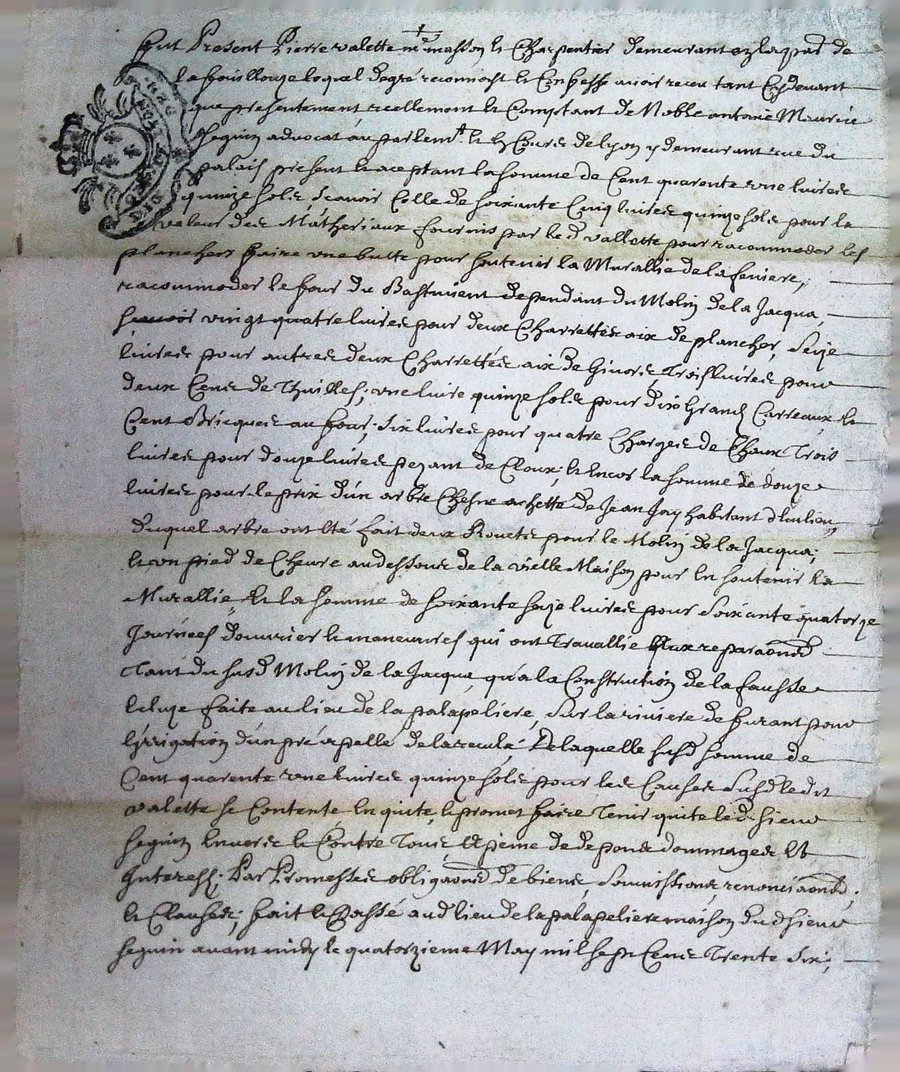 fut Present Pierre valette m.re masson & Charpentier demeurant en la par.d de
la fouillouze lequel de gré reconnoist & Confesse avoir receu tant Cydevant
que presentement reellement & Comptant de Noble antoine Maurice
Seguin advocat au parlem.t & Cours de lyon y demeurant rue du
palais present & aceptant la somme de Cent quarente une livres
quinze sols scavoir Celle de soixante Cinq livres quinze sols pour la
valeur des Matheriaux fournis par led vallette pour racommoder les
planchers faire une butte pour soutenir la Murallie de la feniere,
racommoder le four du Bastiment dependant du Molin de la Jacqua,
scavoir vingt quatre livres pour deux Charrettes aix de plancher, Seize
livres pour autres deux Charrettes aix de Trois livres pour
deux Cens de Thuilles; une livre quinze sols pour dix Grands Carreaux, &
Cent Bricques au four; Six livres pour quatre Charges de Chaux Trois
livres pour douze livres pezant de Cloux, & Encor la somme de douze
livres pour le prix d'un arbre Chesne achetté de Jean Jay habitant dud lieu,
duquel arbre ont Eté fait deux Rouets pour le Molin de la Jacqua;
& un pied de Chevre au dessous de la vielle Maison pour En soutenir la
Murallie, Et la somme de soixante seze livres pour Soixante quatorze
Journées d'ouvrier & maneuvres qui ont Travallié aux reparaons
Tant du susd Molin de la Jacqua qu'a la Construction de la fausse
Ecluze faite au lieu de la palapeliere, Sur la riviere de furant pour
l'jrrigation d'un pré apellé de la reculé De laquelle susd somme de
Cent quarente une livres quinze sols pour les Causes Susd ledit
valette se Contente En quite, & promet faire Tenir quite led. sieur
Seguin Envers & Contre Tous a peine de depens dommages Et
Interess; Par Promesses obligaons de biens Soumissions renonciaons,
& Clauses; fait & Passé aud lieu de la palapeliere maison dud sieur
Seguin avant midy le quatorzieme May mil sept Cens Trente Six,